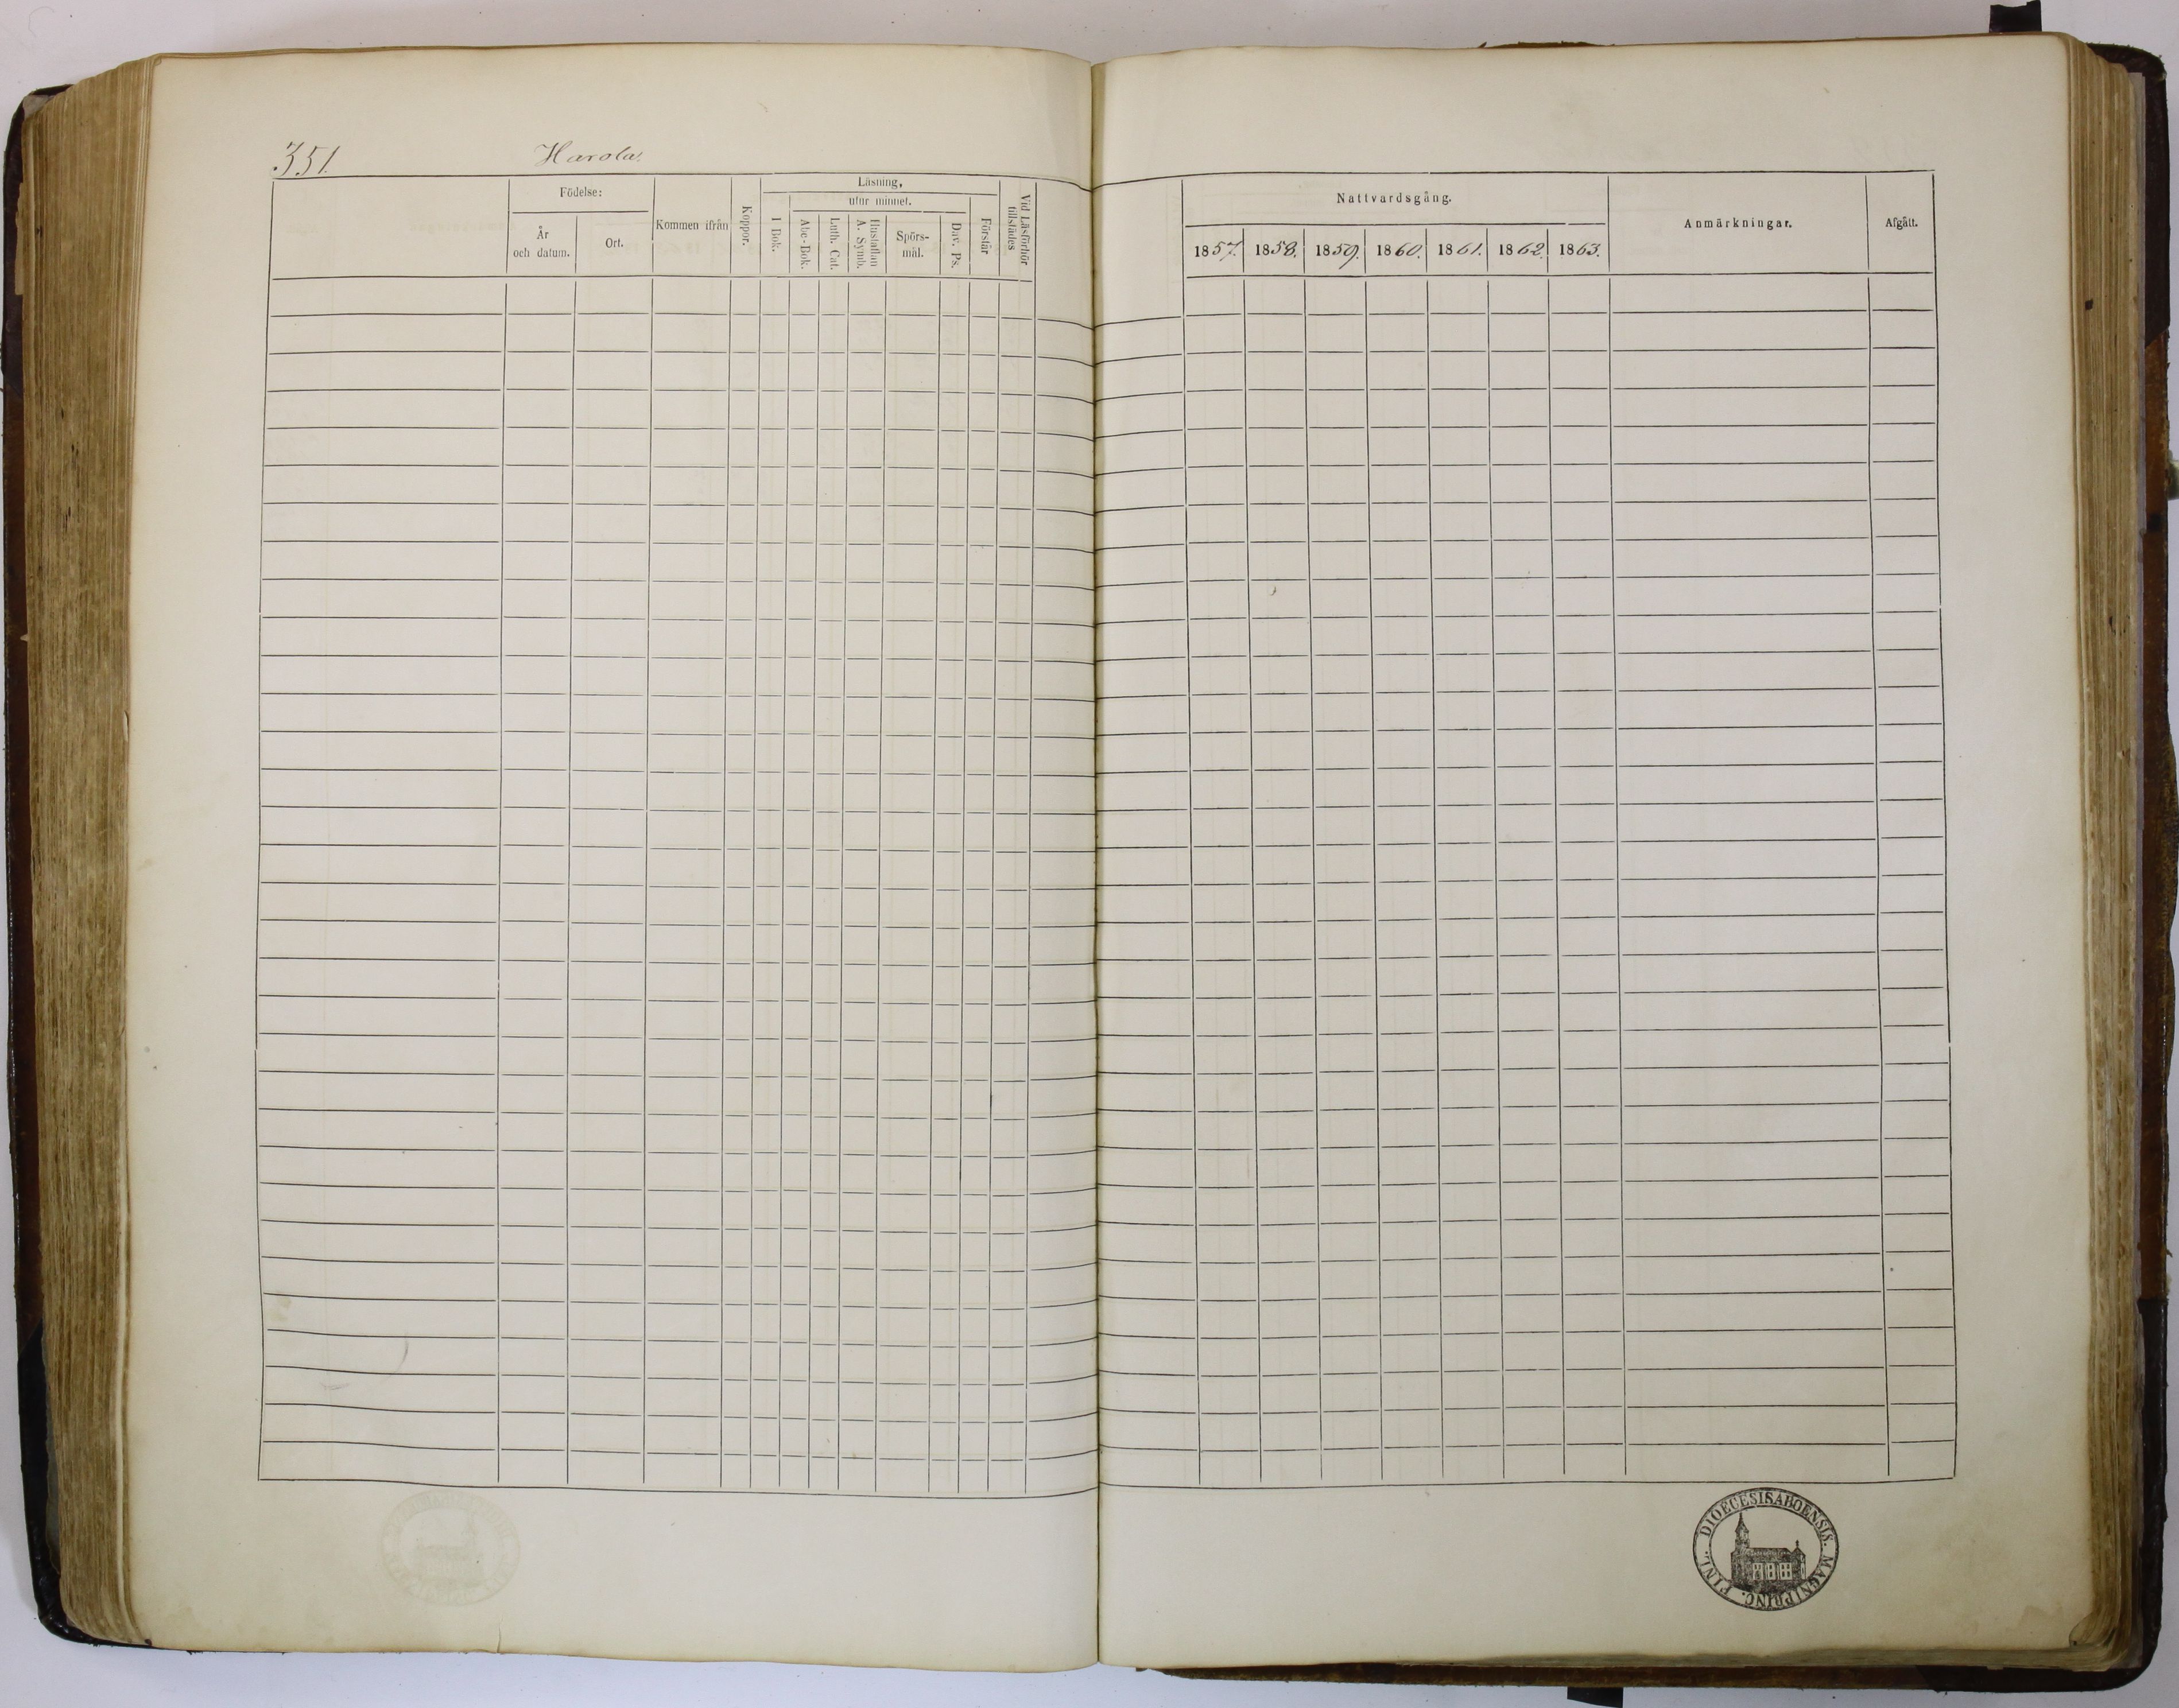 351. Harola.
Födelse:
År
och datum.
Ort.
Kommen ifrån
Koppor.
Läsning,
utur minnet.
I Bok.
Abc-Bok.
Luth. Cat.
Hustaflan
A. Symb.
Spörs-
mål.
Dav. Ps.
Förstår
Vid Läsförhör
tillstädes
Nattvardsgång.
1857. 1858. 1859. 1860. 1861. 1862. 1863.
Anmärkningar.
Afgått.
DIOECESIS ABOENSIS. MAGNI PRINC. FINL.